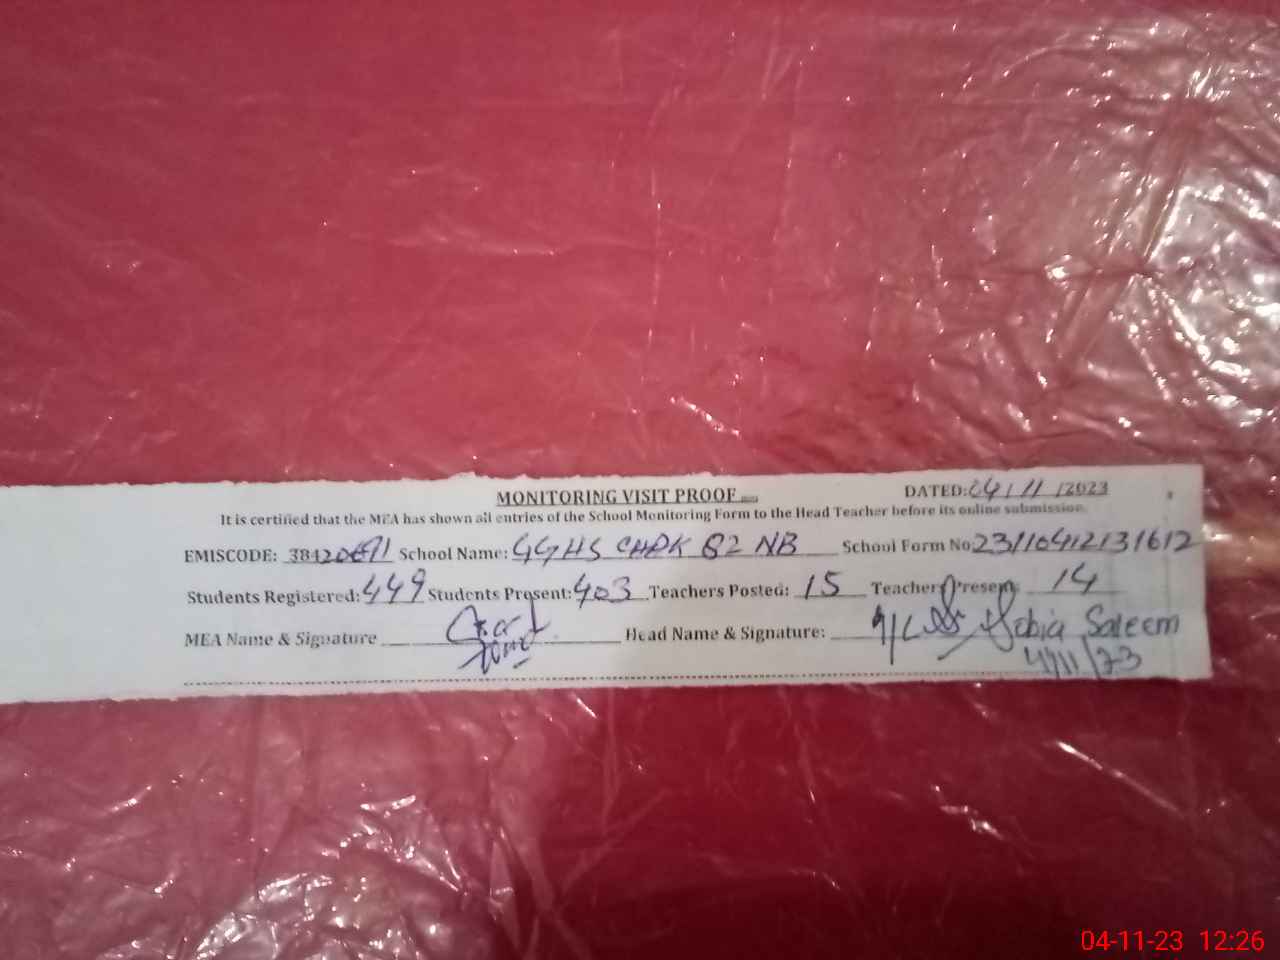 MONITORING VISIT PROOF DATED: 04/11/2023
It is certified that the MEA has shown all entries of the School Monitoring Form to the Head Teacher before its online submission.
EMISCODE: 38420691 School Name: GGHS CHAK 82 NB School Form No 23110412131612
Students Registered: 449 Students Present: 403 Teachers Posted: 15 Teachers Present: 14
MEA Name & Signature Head Name & Signature: Sobia Saleem
4/11/23
04-11-23 12:26